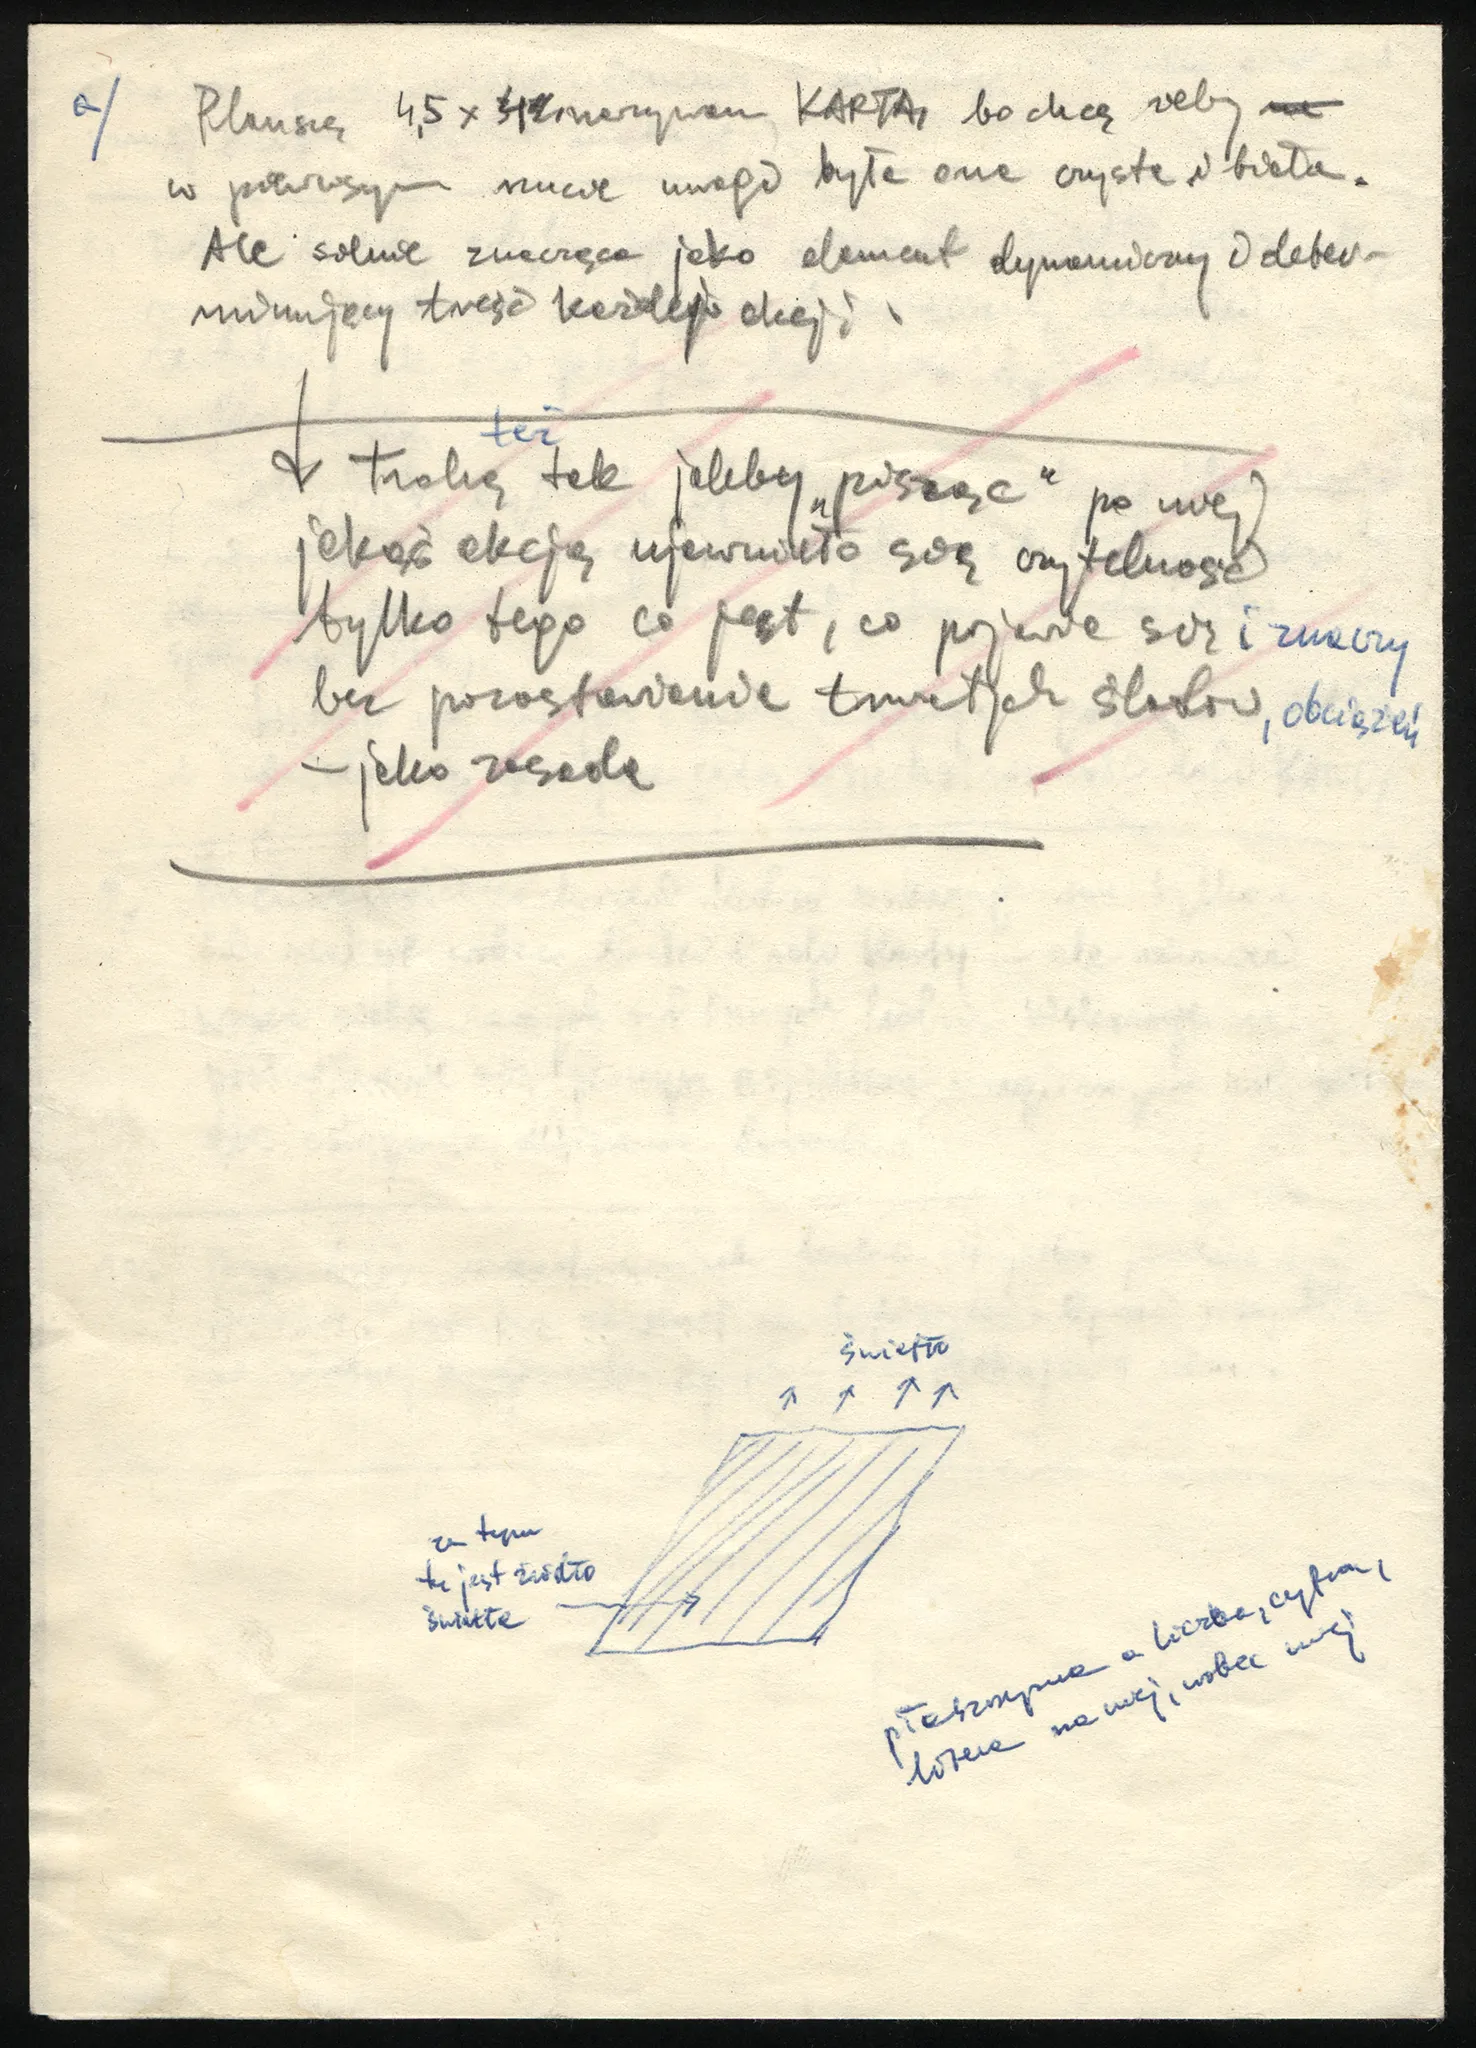 a/ Planszę 4,5 x nazywam KARTĄ, bo chcę żeby na
w pierwszym rzucie uwagi była ona czysta i biała.
Ale silnie znacząca jako element dynamiczny i deter-
minujący treść każdej akcji.
też
trochę tak jakby „pisząc" po niej
jakąś akcją ujawniało się czytelność
tylko tego co jest, co pojawia się i znaczy
bez pozostawienia trwałych śladów, obciążeń
– jako zasada
światło
za tym
tu jest źródło
światła
płaszczyzna a liczba, cyfra,
litera na niej, wobec niej